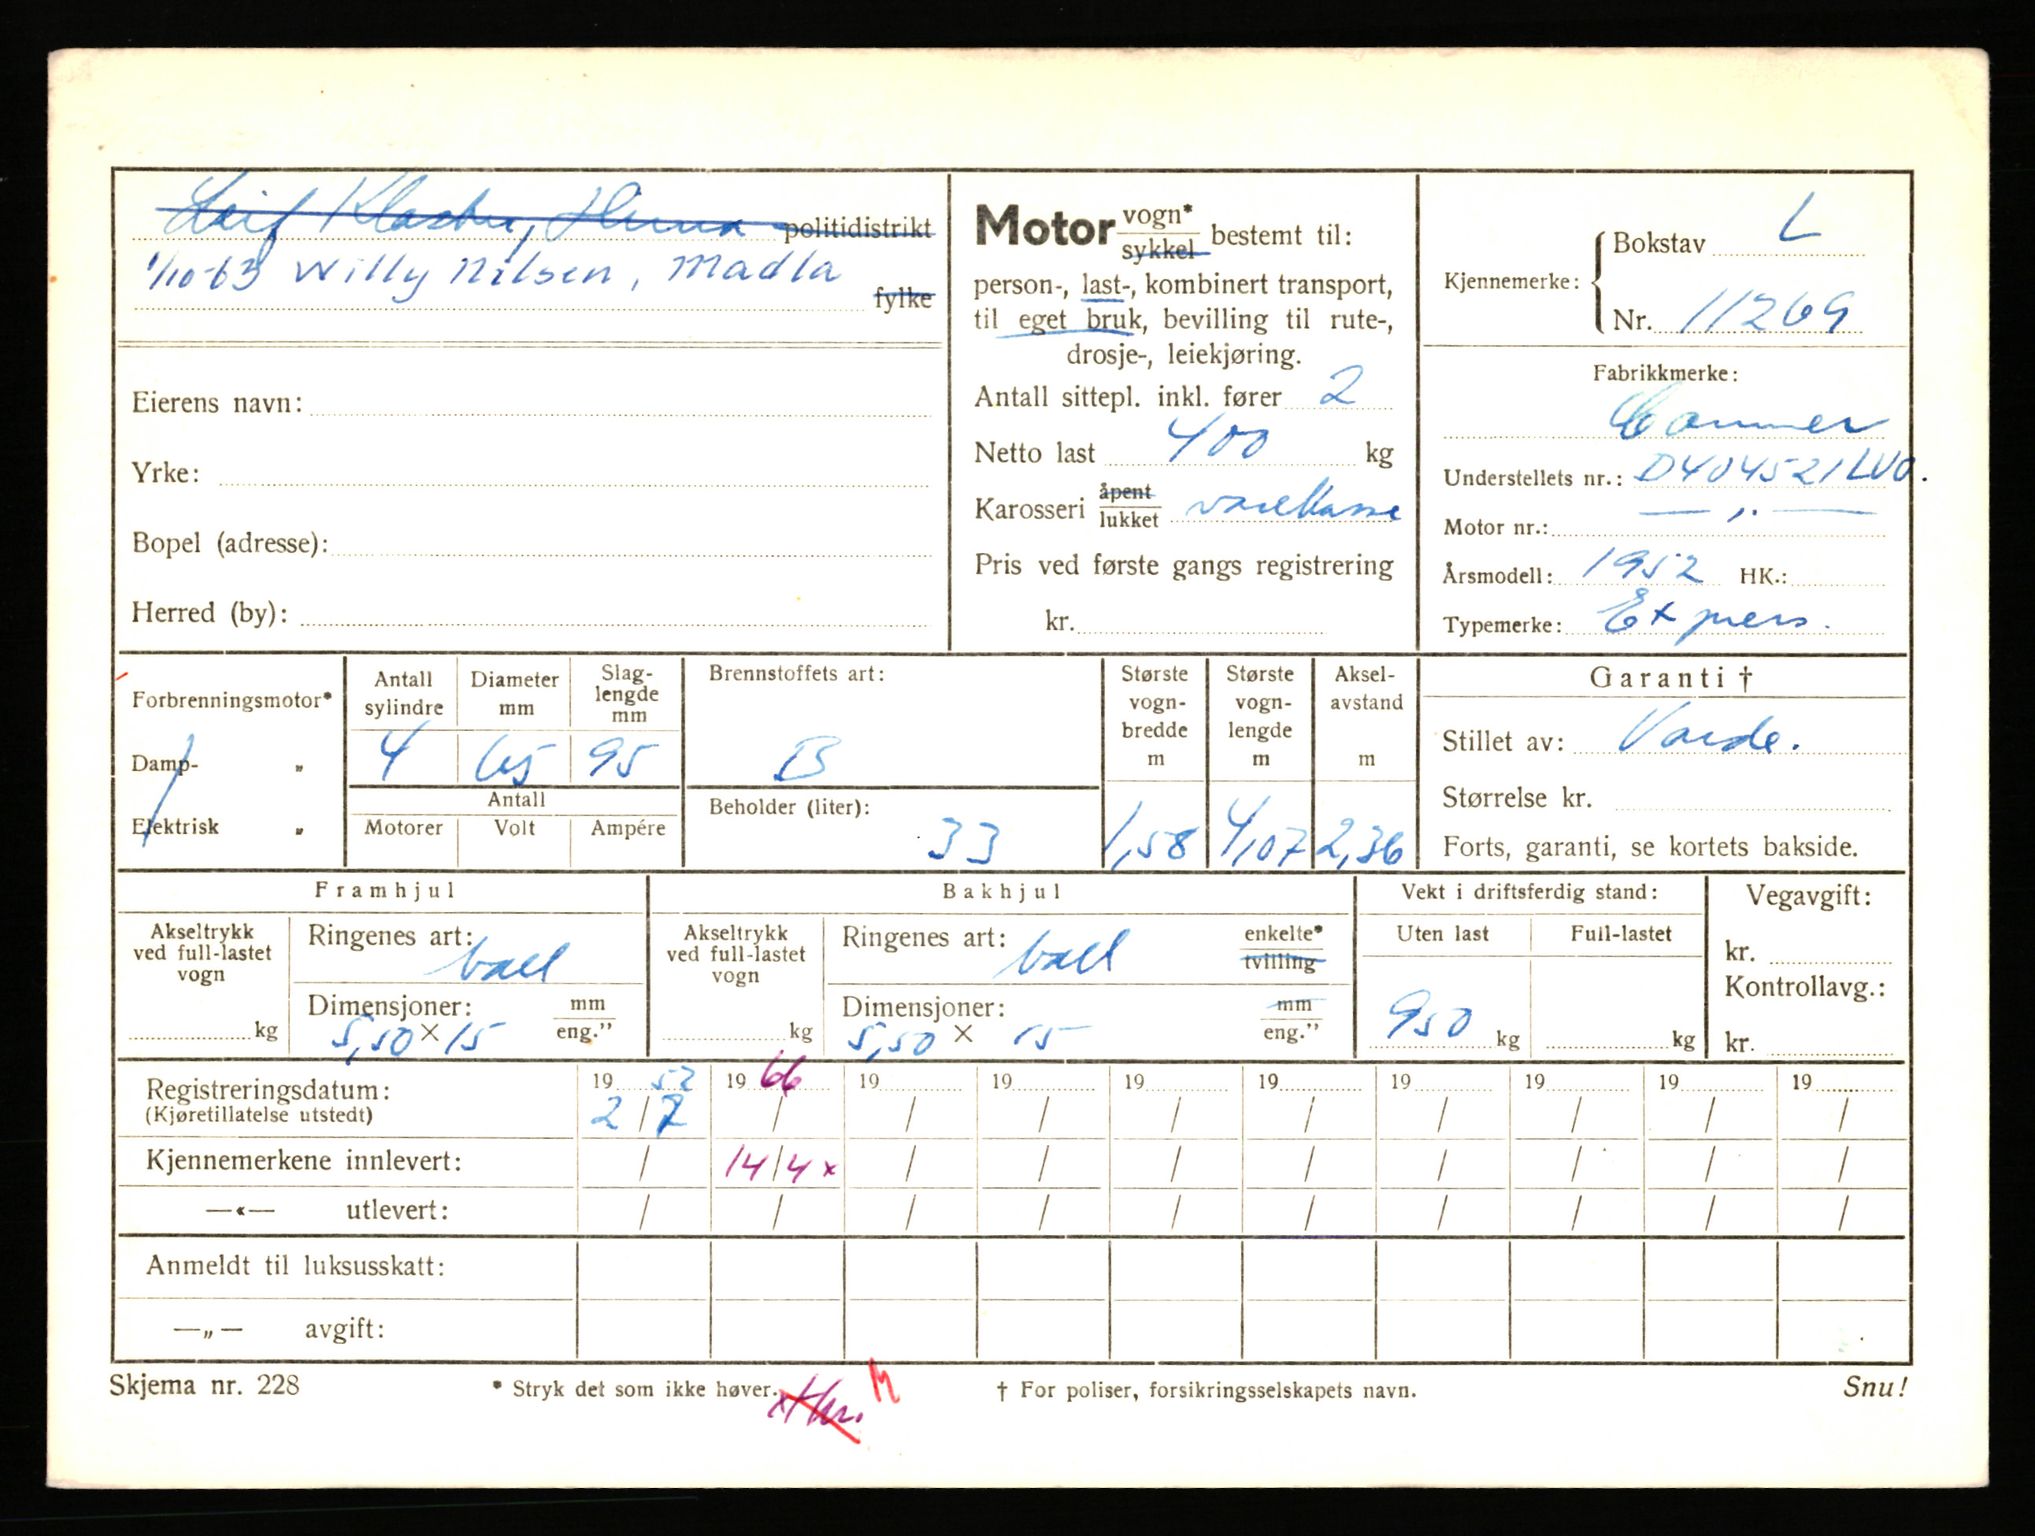 Leif Hinna politidistrikt
1/10-63 Willy Nilsen, Madla
fylke
Eierens navn:
Yrke:
Bopel (adresse):
Herred (by):
Motor vogn* sykkel bestemt til:
person-, last-, kombinert transport,
til eget bruk, bevilling til rute-,
drosje-, leiekjøring.
Antall sittepl. inkl. fører 2
Netto last 400 kg
Karosseri åpent lukket varekasse
Pris ved første gangs registrering
kr.
Kjennemerke: Bokstav L
Nr. 11269
Fabrikkmerke:
Commer
Understellets nr.: D404521LVO.
Motor nr.: — „ —
Årsmodell: 1952 HK.:
Typemerke: Express.
Forbrenningsmotor*
Damp- „
Elektrisk „
Antall sylindre
4
Diameter mm
65
Slag-lengde mm
95
Antall
Motorer Volt Ampére
Brennstoffets art:
B
Beholder (liter):
33
Største vogn-bredde m
1,58
Største vogn-lengde m
4,07
Aksel-avstand m
2,36
Garanti †
Stillet av: Varde.
Størrelse kr.
Forts, garanti, se kortets bakside.
Framhjul
Akseltrykk ved full-lastet vogn
kg
Ringenes art:
ball
Dimensjoner: mm
5,50 × 15 eng."
Bakhjul
Akseltrykk ved full-lastet vogn
kg
Ringenes art: enkelte*
ball tvilling
Dimensjoner: mm
5,50 × 15 eng."
Vekt i driftsferdig stand:
Uten last Full-lastet
950 kg kg
Vegavgift:
kr.
Kontrollavg.:
kr.
Registreringsdatum: 19 52 19 66 19 19 19 19 19 19 19 19
(Kjøretillatelse utstedt) 2/7 / / / / / / / / /
Kjennemerkene innlevert: / 14/4 x / / / / / / / /
—«— utlevert: / / / / / / / / / /
Anmeldt til luksusskatt:
—„— avgift:
Skjema nr. 228
* Stryk det som ikke høver.
† For poliser, forsikringsselskapets navn.
Snu!